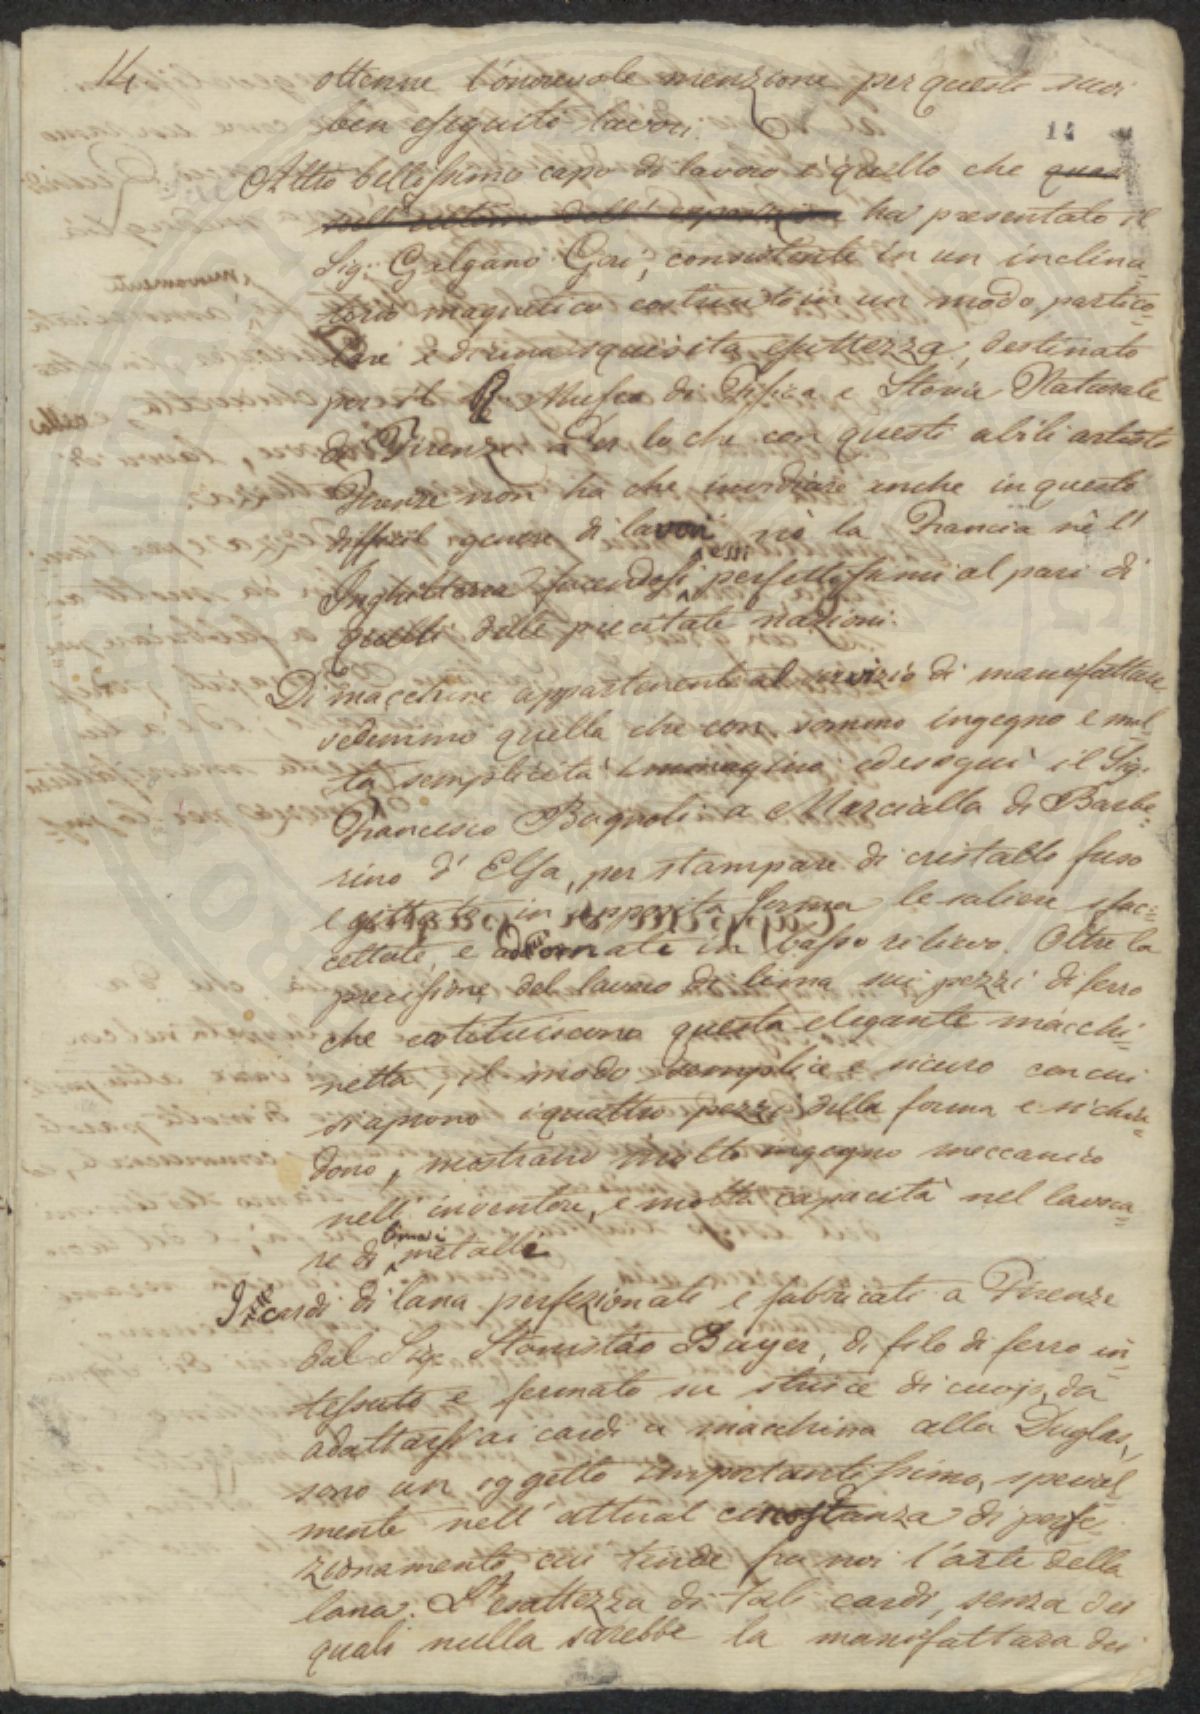 14
ottenne l'onorevole menzione per questi suoi
ben eseguiti lavori.
14
Altro bellissimo capo di lavoro è quello che
ha presentato il
Sig.r Galgano Gori, consistente in un inclina=
torio magnetico costruito in un modo partico=
lare e di una squisita esattezza, destinato
per il R Museo di Fisica e Storia Naturale
di Firenze. Per lo che con questi abili artisti
Firenze non ha che invidiare anche in questo
difficil genere di lavori nè la Francia nè l'
Inghilterra facendosi essi perfettissimi al pari di
quelli delle precitate nazioni.
Di macchine appartenenti al servizio di manifatture
vedemmo quella che con sommo ingegno e mol=
ta semplicità immaginò ed eseguì il Sig.
Francesco Bagnoli a Marcialla di Barbe=
rino d'Elsa, per stampare di cristallo fuso
e gittato in apposita forma le saliere sfac=
cettate, e adornate in basso rilievo. Oltre la
precisione del lavoro di lima sui pezzi di ferro
che costituiscono questa elegante macchi=
netta, il modo semplice e sicuro con cui
si aprono i quattro pezzi della forma e si chiu=
dono, mostrano molto ingegno meccanico
nell'inventore, e molta capacità nel lavora=
re di metalli
I cardi di lana perfezionati e fabbricati a Firenze
dal Sig. Stanislao Buyer, di filo di ferro in=
tessuto e fermato su strisce di cuojo, da
adattarsi ai cardi a macchina alla Duglas,
sono un oggetto importantissimo, special
mente nell'attual circostanza di perfe=
zionamento cui tende fra noi l'arte della
lana. L'esattezza di tali cardi, senza dei
quali nulla sarebbe la manifattura dei